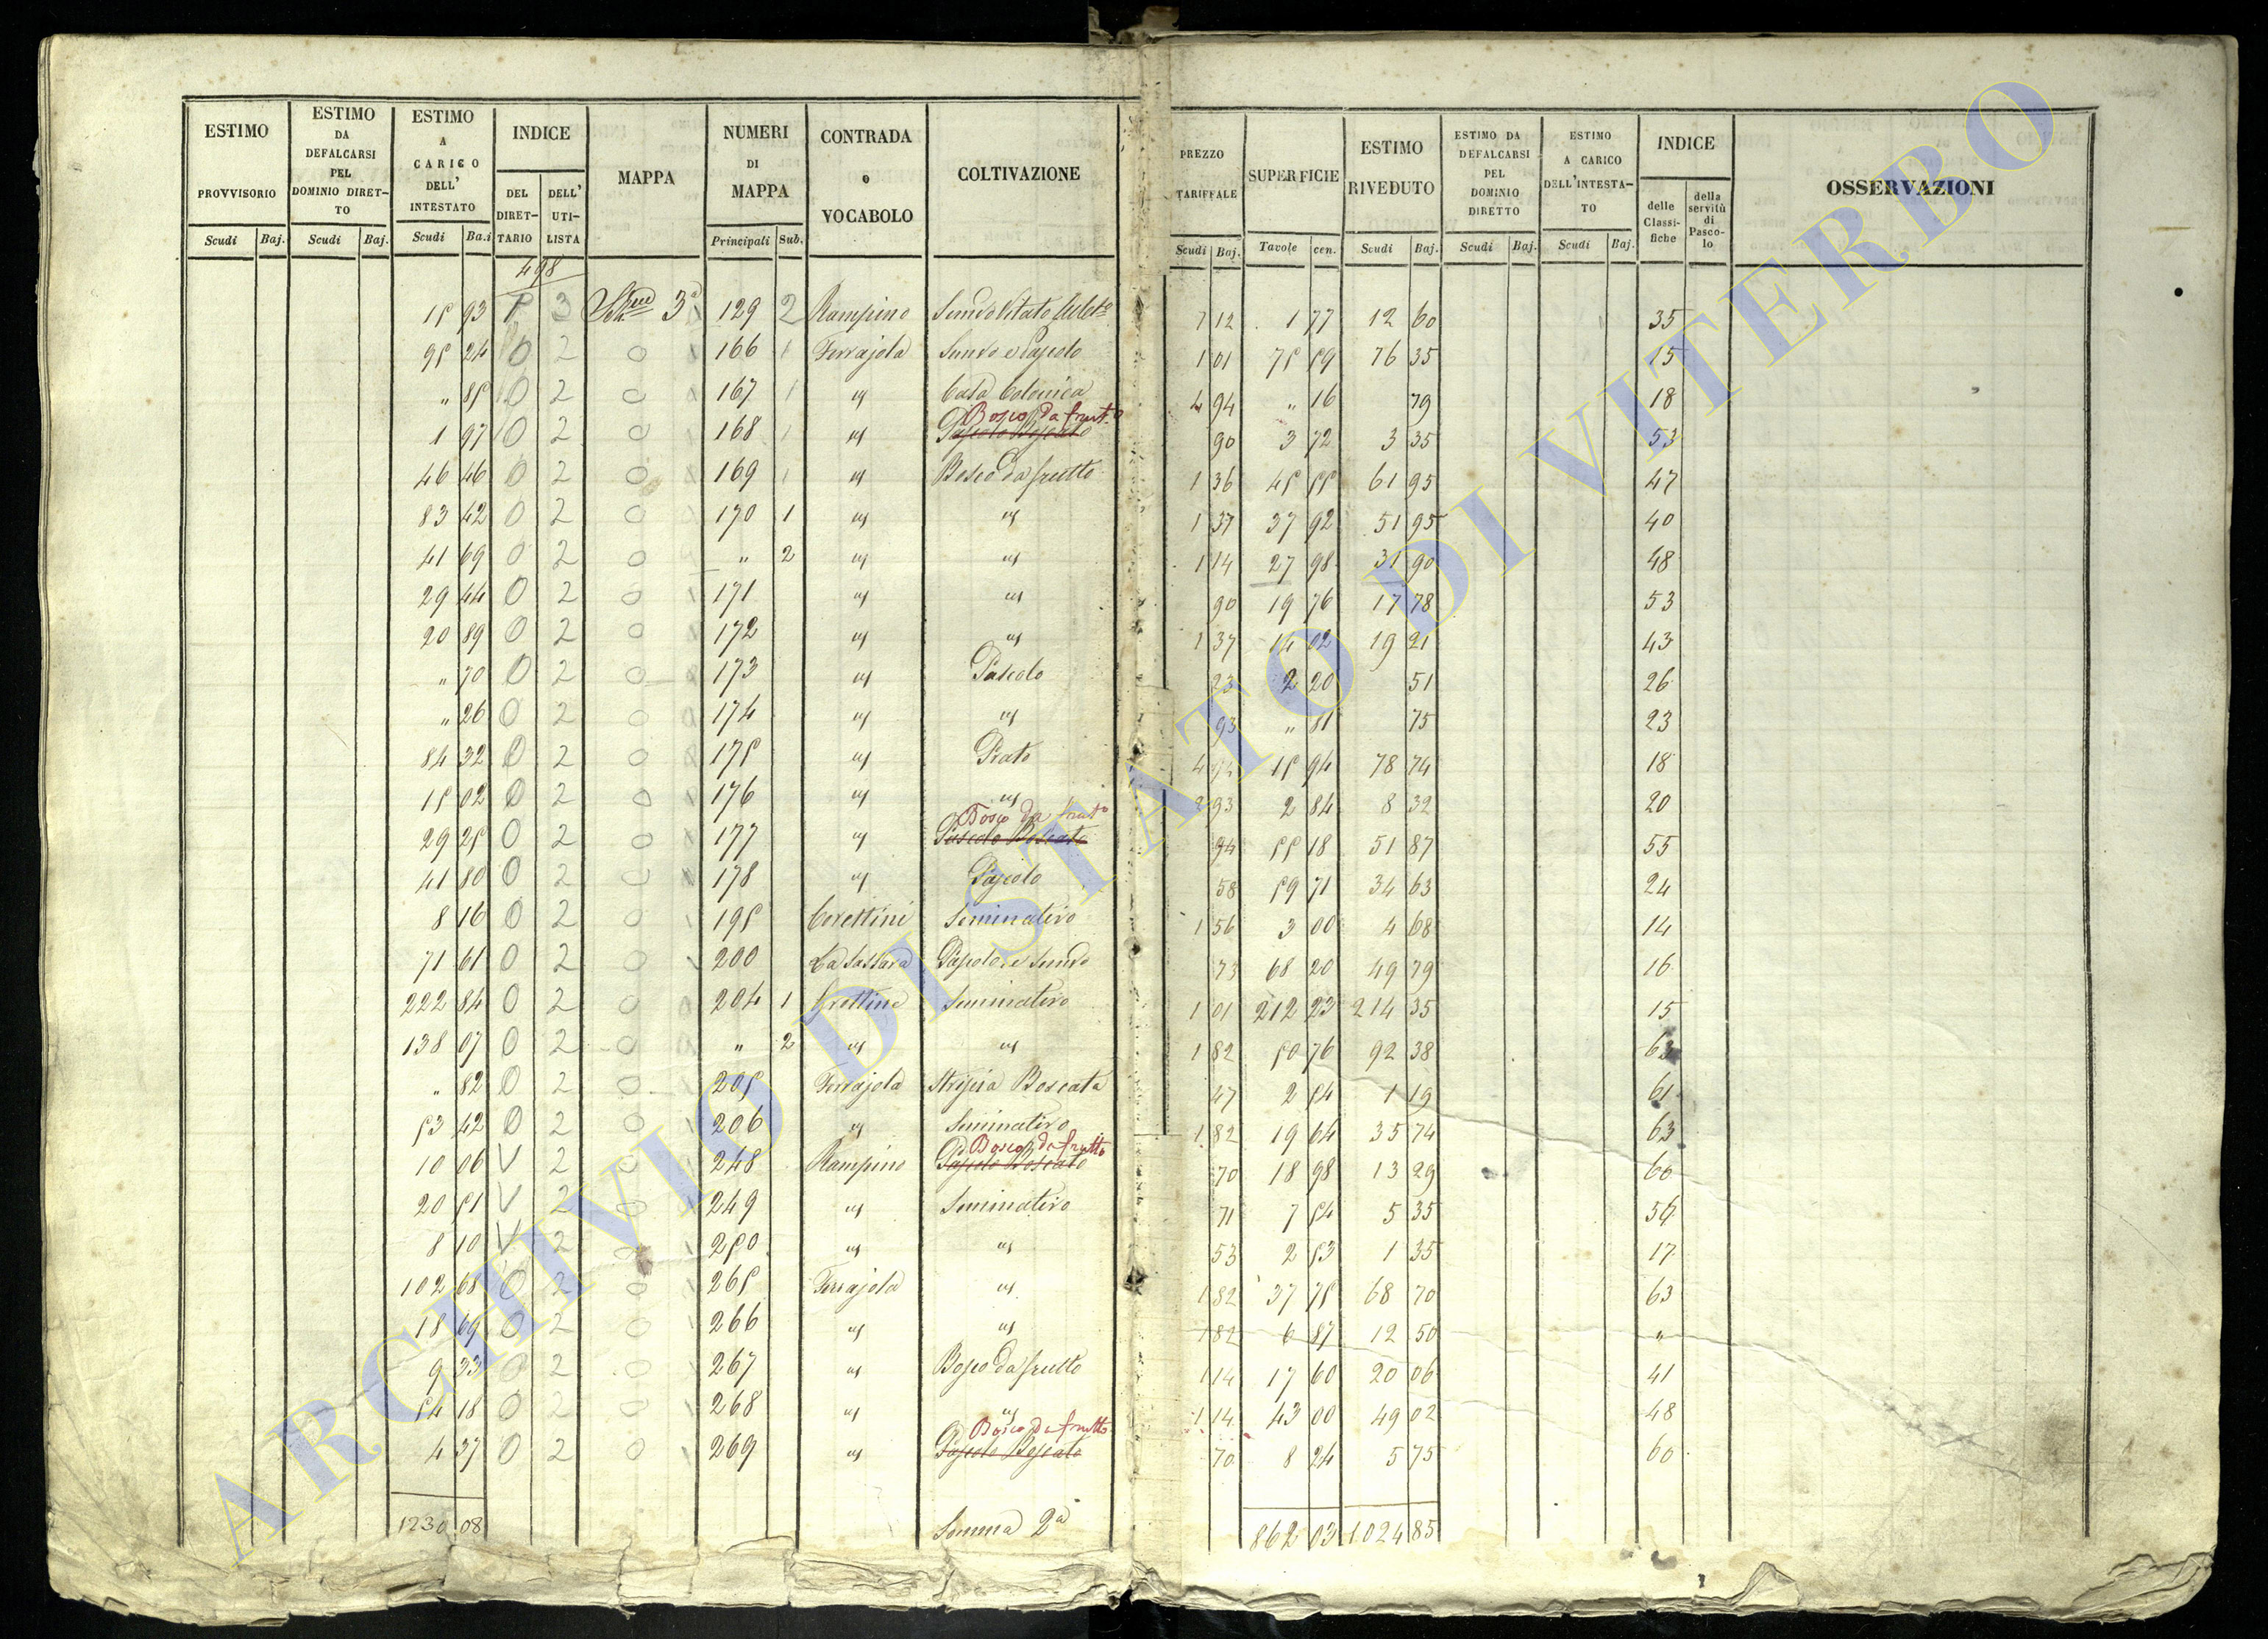 ESTIMO PROVVISORIO Scudi Baj.
ESTIMO DA DEFALCARSI PEL DOMINIO DIRET-TO Scudi Baj.
ESTIMO A CARICO DELL' INTESTATO Scudi Ba.i
INDICE DEL DIRET-TARIO DELL' UTI-LISTA
MAPPA
NUMERI DI MAPPA Principali Sub.
CONTRADA e VOCABOLO
COLTIVAZIONE
PREZZO TARIFFALE Scudi Baj.
SUPERFICIE Tavole cen.
ESTIMO RIVEDUTO Scudi Baj.
ESTIMO DA DEFALCARSI PEL DOMINIO DIRETTO Scudi Baj.
ESTIMO A CARICO DELL'INTESTA-TO Scudi Baj.
INDICE delle Classi-fiche della servitù di Pasco-lo
OSSERVAZIONI
498
15 93 3 3a 129 2 Rampino 7 12 1 77 12 60 35
95 24 O 2 O 166 1 Ferrajola Semvo e Pascolo 1 01 75 59 76 35 15
" 85 O 2 O 167 1 " Casa Colonica 4 94 " 16 79 18
Bosco da frutto
1 97 O 2 O 168 1 " Pascolo Boscato 90 3 72 3 35 53
46 46 O 2 O 169 1 " Bosco da frutto 1 36 45 55 61 95 47
83 42 O 2 O 170 1 " " 1 37 37 92 51 95 40
41 69 O 2 O " 2 " " 1 14 27 98 31 90 48
29 44 O 2 O 171 " " 90 19 76 17 78 53
20 89 O 2 O 172 " " 1 37 14 02 19 21 43
" 70 O 2 O 173 " Pascolo 23 2 20 51 26
" 26 O 2 O 174 " " 93 " 81 75 23
84 32 O 2 O 175 " Prato 4 94 15 94 78 74 18
15 02 O 2 O 176 " " 2 93 2 84 8 32 20
Bosco da frutto
29 25 O 2 O 177 " Pascolo Boscato 94 55 18 51 87 55
41 80 O 2 O 178 " Pascolo 58 59 71 34 63 24
8 16 O 2 O 195 Cerettini Seminativo 1 56 3 00 4 68 14
71 61 O 2 O 200 La Sassara Pascolo, e Semvo 73 68 20 49 79 16
222 84 O 2 O 204 1 Seminativo 1 01 212 23 214 35 15
138 07 O 2 O " 2 " " 1 82 50 76 92 38 63
" 82 O 2 O 205 Ferrajola Boscata 47 2 54 1 19 61
53 42 O 2 O 206 " Seminativo 1 82 19 64 35 74 63
Bosco da frutto
10 06 V 2 O 248 Rampino Pascolo Boscato 70 18 98 13 29 60
20 51 V 2 O 249 " Seminativo 71 7 54 5 35
8 10 V 2 O 250 " " 53 2 53 1 35 17
102 68 O 2 O 265 Ferrajola " 1 82 37 75 68 70 63
18 69 O 2 O 266 " " 1 82 6 87 12 50 "
9 33 O 2 O 267 " Bosco da frutto 1 14 17 60 20 06 41
54 18 O 2 O 268 " " 1 14 43 00 49 02 48
Bosco da frutto
4 37 O 2 O 269 " Pascolo Boscato 70 8 24 5 75 60
1230 08 Somma 2a 862 03 1024 85
ARCHIVIO DI STATO DI VITERBO